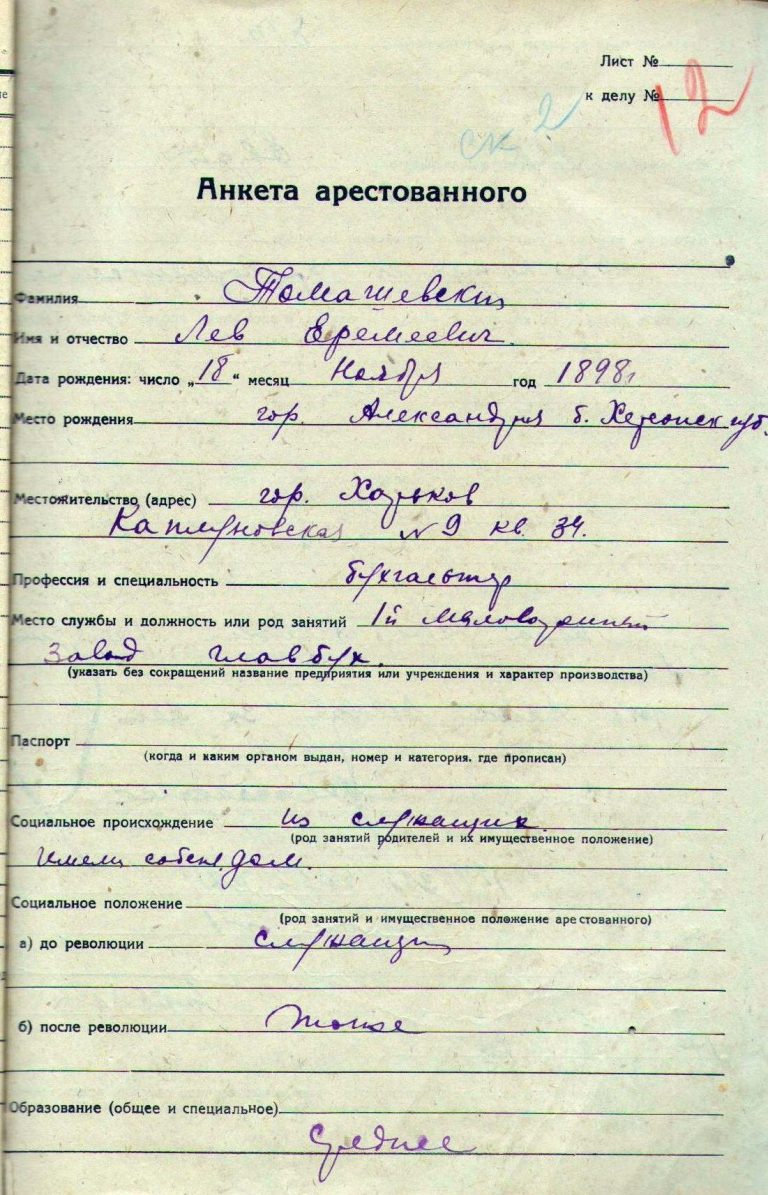 Лист №
к делу № 12
ск 2
Анкета арестованного
Фамилия Томашевский
Имя и отчество Лев Еремеевич.
Дата рождения: число „18“ месяц Ноября год 1898г
Место рождения гор. Александрия б. Херсонск губ.
Местожительство (адрес) гор. Харьков
Каплуновская № 9 кв. 34.
Профессия и специальность бухгалтер
Место службы и должность или род занятий 1й Мыловаренный
Завод главбух.
(указать без сокращений название предприятия или учреждения и характер производства)
Паспорт
(когда и каким органом выдан, номер и категория. где прописан)
Социальное происхождение из служащих
(род занятий родителей и их имущественное положение)
Имели собств. дом.
Социальное положение
(род занятий и имущественное положение арестованного)
а) до революции служащий
б) после революции тоже
Образование (общее и специальное)
Среднее